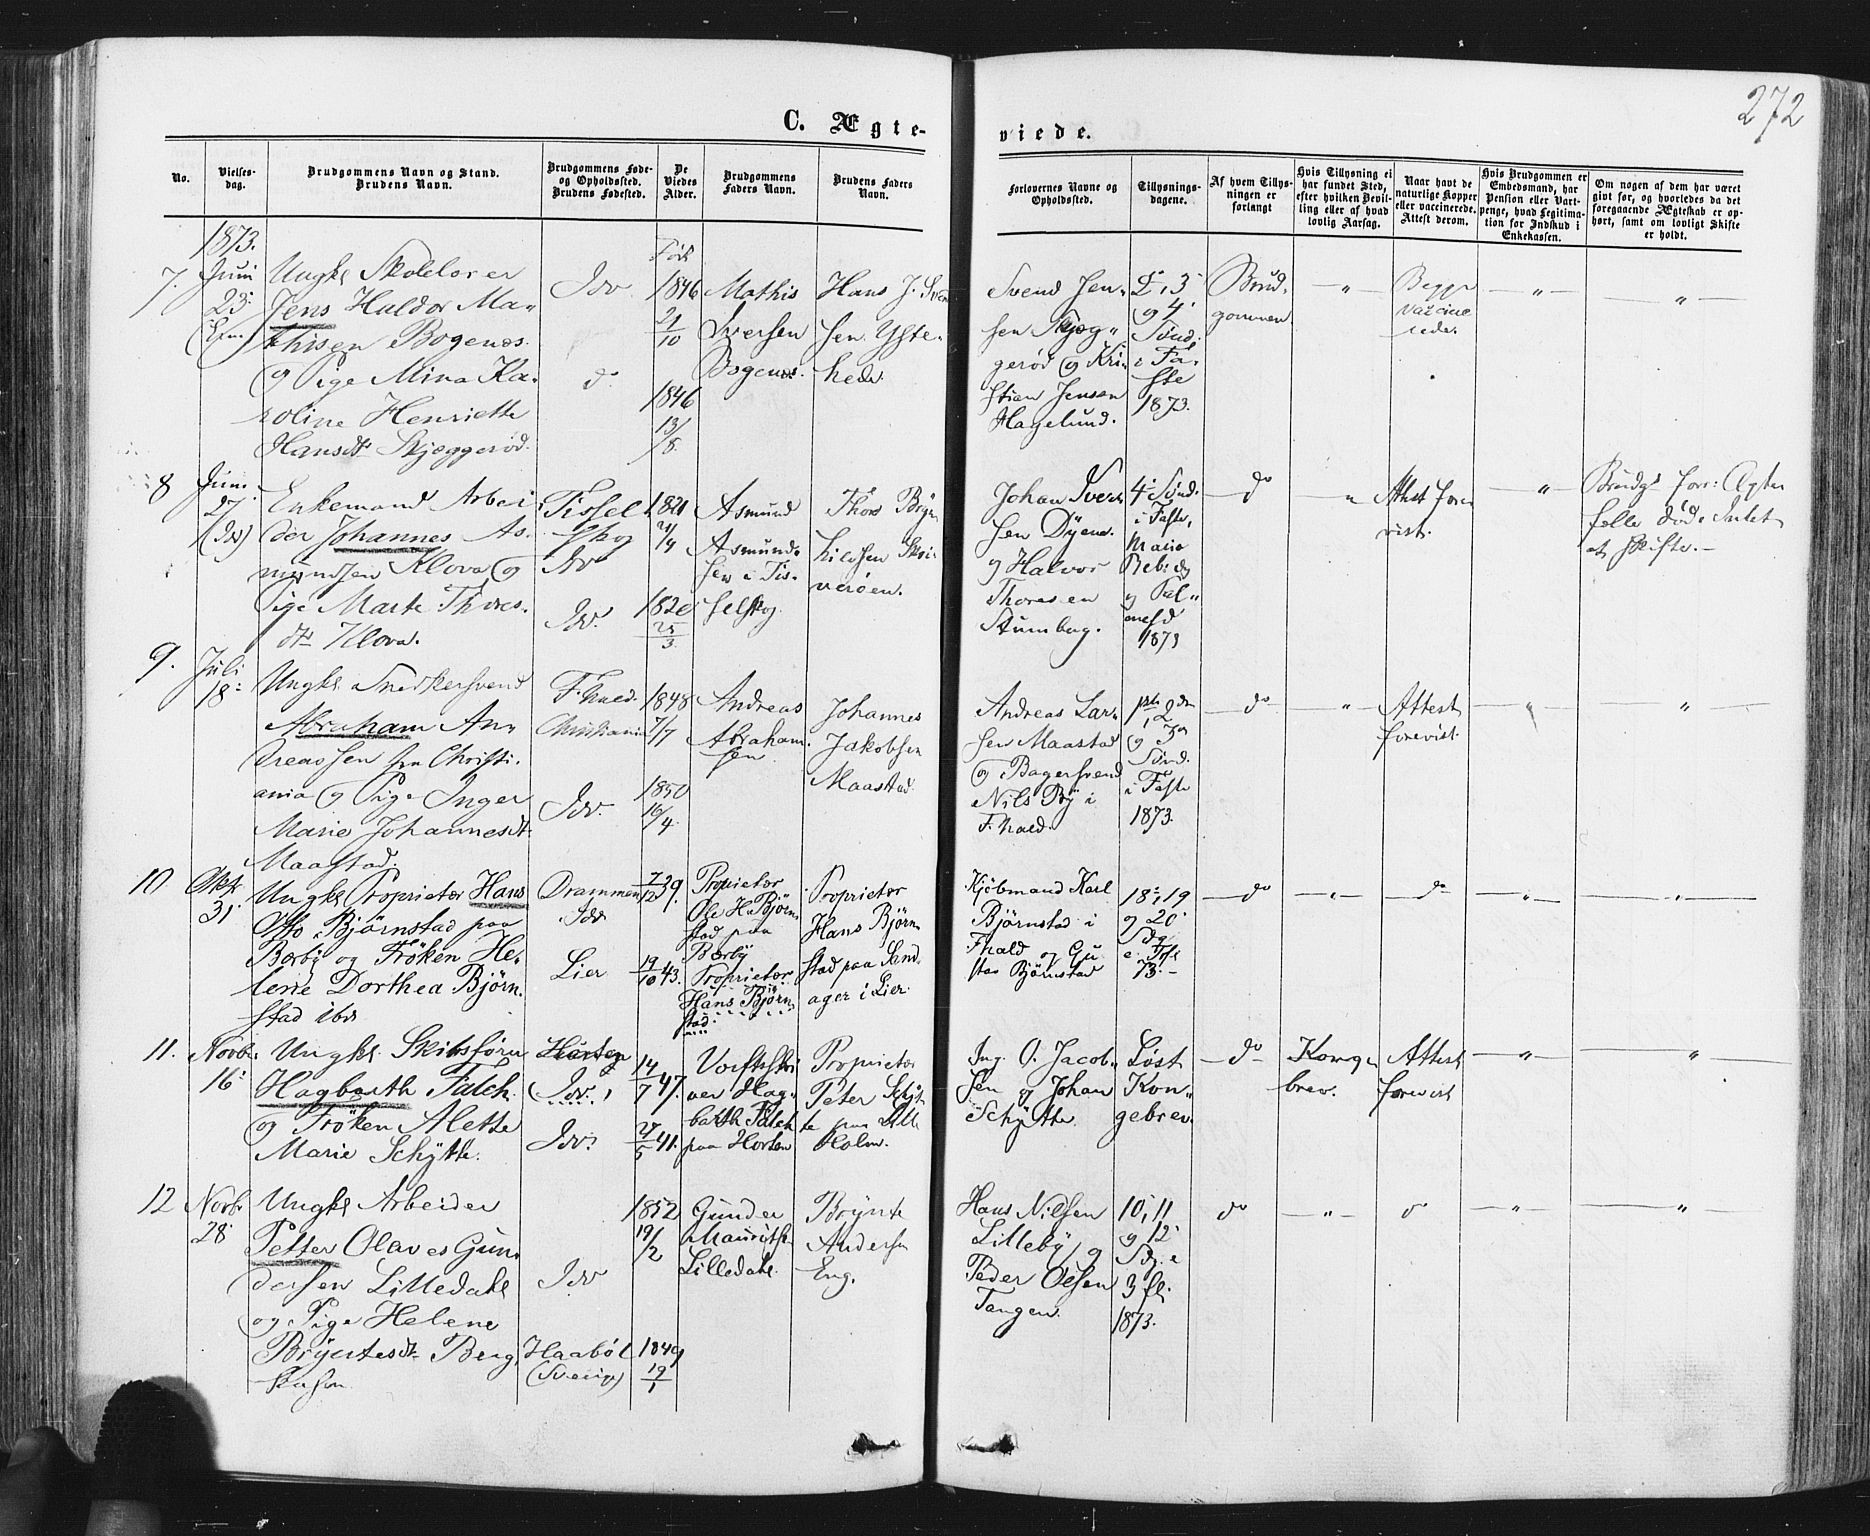 272
C. Ægte-
viede.
No.
Vielses-
dag.
Brudgommens Navn og Stand.
Brudens Navn.
Brudgommens Føde-
og Opholdssted.
Brudens Fødested.
De
Viedes
Alder.
Brudgommens
Faders Navn.
Brudens Faders
Navn.
Forlovernes Navne og
Opholdssted.
Tillysnings-
dagene.
Af hvem Tillys-
ningen er
forlangt
Hvis Tillysning ei
har fundet Sted,
efter hvilken Bevil-
ling eller af hvad
lovlig Aarsag.
Naar havt de
naturlige Kopper
eller vaccinerede.
Attest derom.
Hvis Brudgommen er
Embedsmand, har
Pension eller Vart-
penge, hvad Legitima-
tion for Indskud i
Enkekassen.
Om nogen af dem har været
gift før, og hvorledes da det
foregaaende Ægteskab er op-
hørt, samt om lovligt Skifte
er holdt.
1873.
7.
Juni
23:
Ungkl Skolelærer
Jens Huldor Ma-
thisen Bogenæs
og Pige Mina Ka-
roline Henriette
Hansdt Skjæggerød.
Idd
d.
Født
1846
21/10
1846
13/8
Mathis
Iversen
Bogenæs.
Hans J. Sven
sen Yste-
hede.
Svend Jen-
sen Skjæg-
gerød og Kri-
stian Jensen
Hagelund.
2, 3
og 4
Sønd.
i Fa-
ste
1873.
Brud-
gommen
"
Begge
vaccine
rede.
"
"
8
Juni
27
(Idd)
Enkemand Arbei
der Johannes As-
mundsen Klova og
Pige Marte Thores-
dt Klova.
Tissel
skog
Idd
Idd.
1821
21/4
1820
25/3
Asmund
Asmund-
sen i Tis-
selskog.
Thore Børn
hildsen Skri-
verøen.
Johan Iver
sen Dyene
og Halvor
Thoresen
Stumberg.
4 Sønd.
i Faste,
Maria
Beb: dg
og Pal-
mesd
1873
do
"
Attest fore
vist.
"
Brudgs forr: Ægte
fælle død. Intet
at skifte.-
9.
Juli
18:
Ungkl Snedkersvend
Abraham An-
dreassen fra Christi-
ania og Pige Inger
Marie Johannesdt
Maastad.
F.hald.
Christiania
Idd.
1848
7/7
1850
16/4
Andreas
Abraham-
sen
Johannes
Jakobsen
Maastad.
Andreas Lar-
sen Maastad
og Bagersvend
Nils By i
F.hald.
1ste, 2den
og 3die
Sønd.
i Faste
1873.
do
"
Attest
forevist.
"
"
10
Oktr
31.
Ungkl Proprietær Hans
Otto Bjørnstad paa
Berby og Frøken He-
lene Dorthea Bjørn-
stad ibd
Drammen
Idd
Lier
7/12 39.
19/10 43.
Proprietær
Ole H. Bjørn-
stad paa
Berby
Proprietær
Hans Bjørn
stad.
Proprietær
Hans Bjørn-
stad paa Land-
ager i Lier.
Kjøbmand Karl
Bjørnstad i
Fhald og Gu
stav Bjørnstad
18, 19
og 20
Sdg
e. Tfl
73.-
do
"
do
"
"
11.
Novbr.
16:
Ungkl. Skibsføre
Hagbarth Falch
og Frøken Alette
Marie Schytte.
Horten
(Idd.)
Idd.
14/7 47.
27/5 41.
Værftsskri
ver Hag-
barth Falch
paa Horten
Proprietær
Peter Schyt
te paa Lille
Holm.
Ing. O. Jacob-
sen og Johan
Schytte.
Løst
Kon-
gebrev.
do
Konge
brev.
Attest
forevist
"
"
12
Novbr
28.
Ungkl Arbeider
Petter Olaves Gun-
dersen Lilledahl
og Pige Helene
Bryntesdt Berg
Idd
Haabøl
(Sverige)
1852
19/2
1849
19/1
Gunder
Mauritsn
Lilledahl.
Brynte
Andersen
Eng.
Hans Nilsen
Lilleby og
Peder Olsen
Tangen.
10, 11
og 12
Sdg. e
3 fl:
1873.
do
"
d
"
"